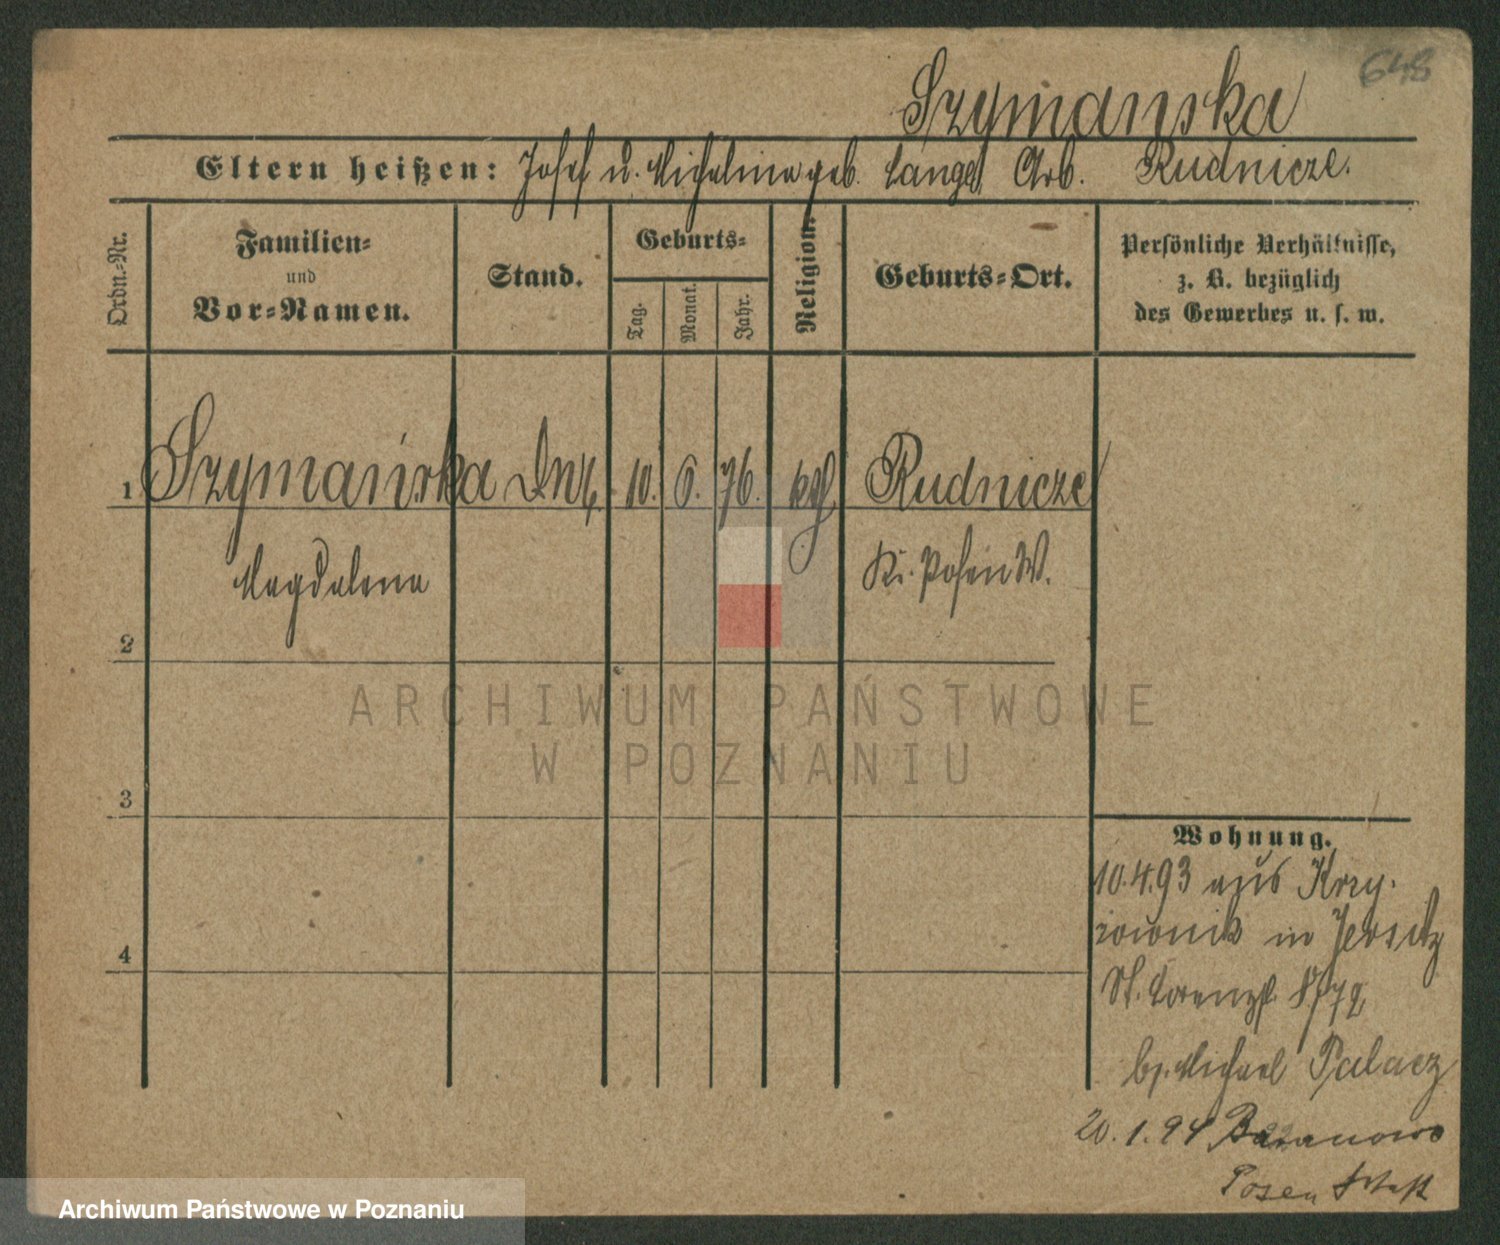 648
Szymanska
Eltern heißen: Josef u. Michalina geb. Lange Arb. Rudnicze.
Ordn.-Nr.
Familien-
und
Vor-Namen.
Stand.
Geburts-
Tag.
Monat.
Jahr.
Religion.
Geburts-Ort.
Persönliche Verhältnisse,
z. B. bezüglich
des Gewerbes u. s. w.
1 Szymańska 10. 6. 76. kth Rudnicze
Magdalena Kr. Posen W.
2
ARCHIWUM PAŃSTWOWE
W POZNANIU
3
Wohnung.
10.4.93 aus Krzy-
żownik in Jersitz
St. Lorenzstr.
b/. Michael Palacz
4
20.1.94 Baranowo
Posen West
Archiwum Państwowe w Poznaniu